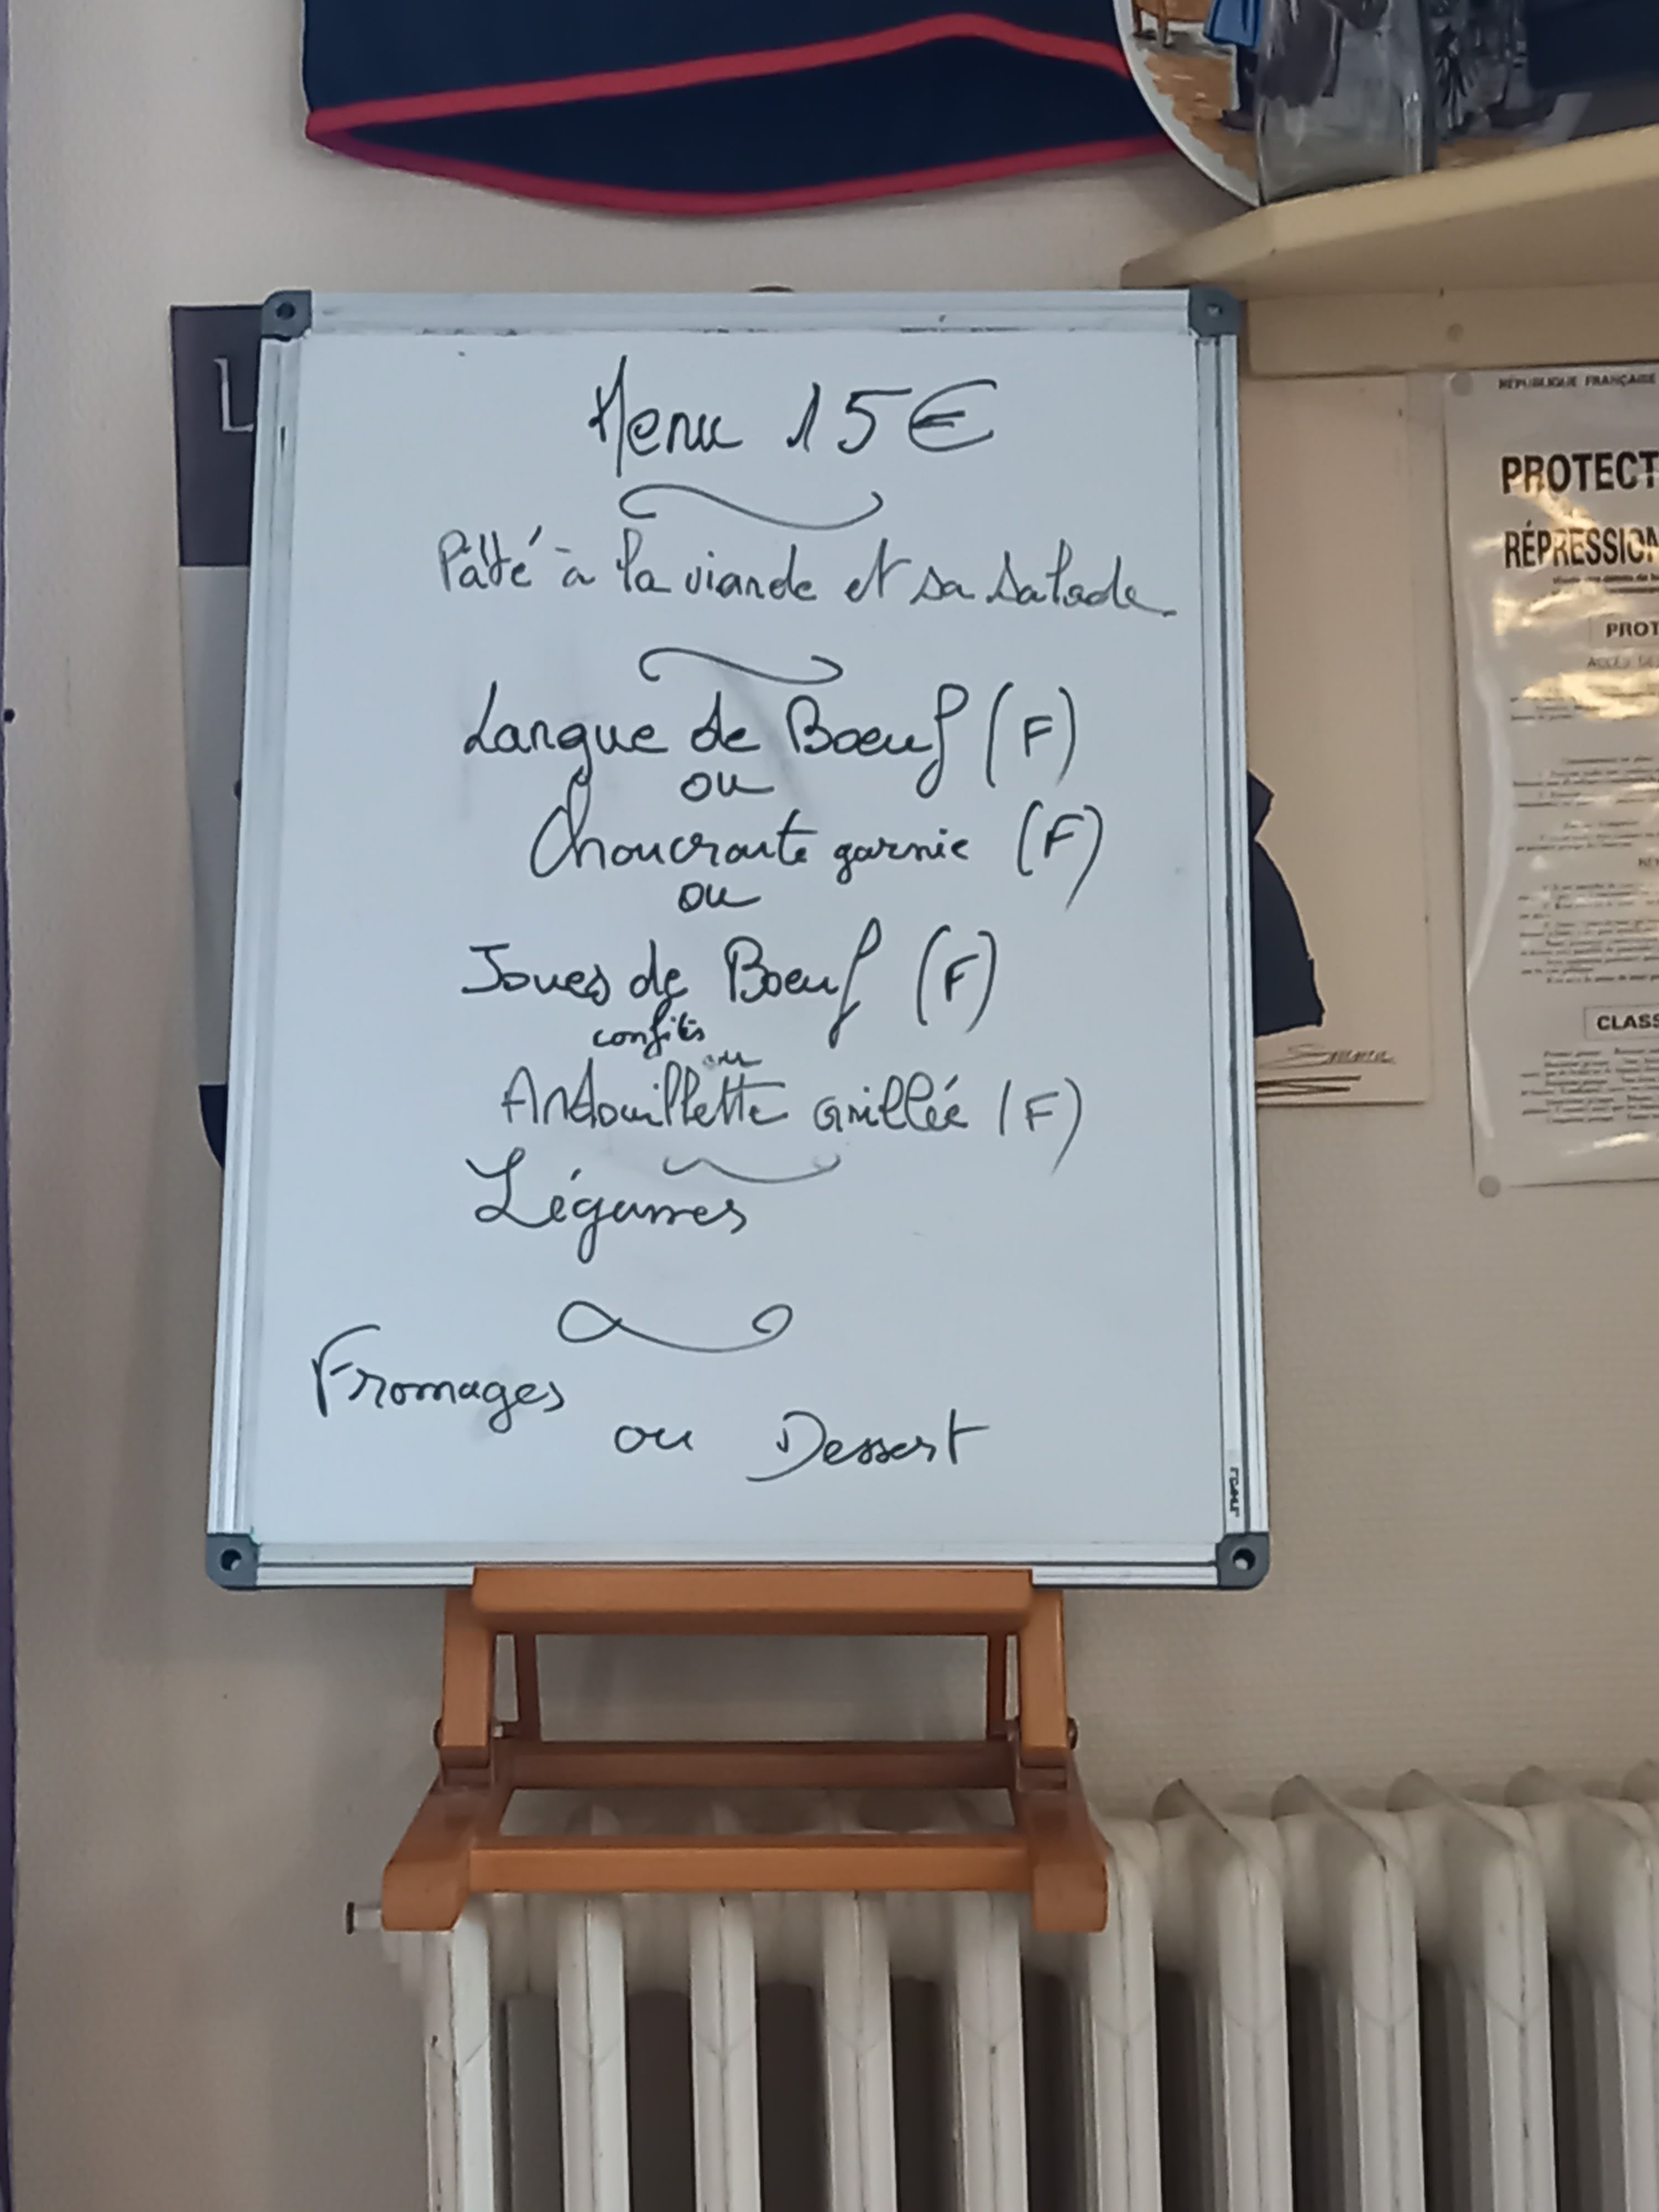 Menu 15€
Pâté à la viande et sa salade
Langue de Boeuf (F)
ou
Choucroute garnie (F)
ou
Joues de Boeuf (F)
confites
ou
Andouillette Grillée (F)
Légumes
Fromages
ou Dessert
L
RÉPUBLIQUE FRANÇAISE
PROTECT
RÉPRESSION
PROT
CLASS